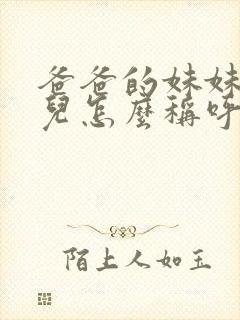 爸爸的妹妹
兒怎麼稱呼
陌上人如玉